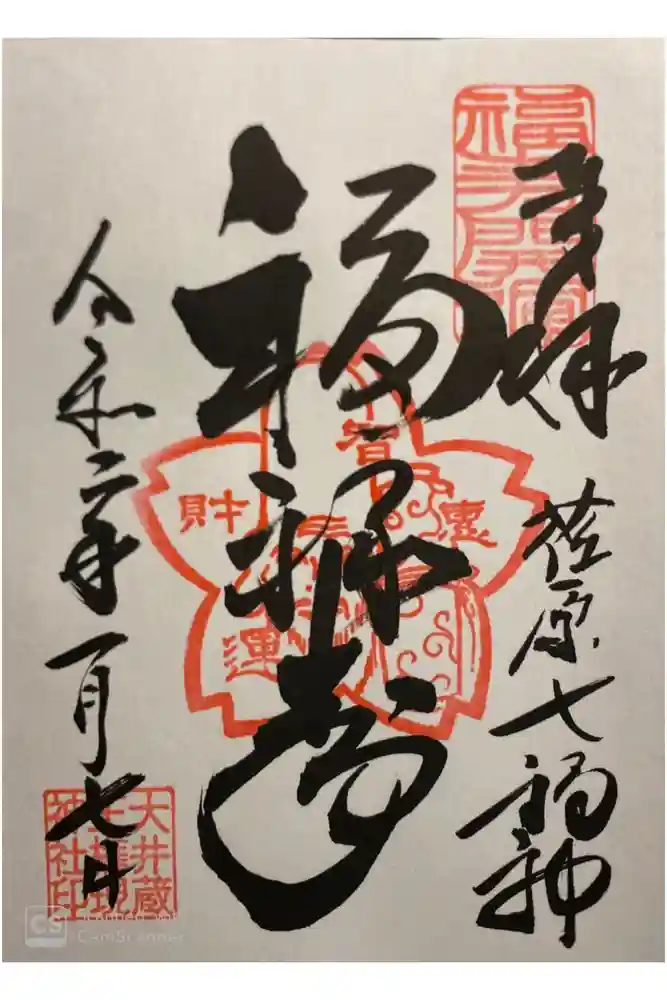 奉拝
荏原七福神
福禄寿
令和二年一月七日
智
慧
財
運
大井蔵
王権現
神社印
CS
CamScanner